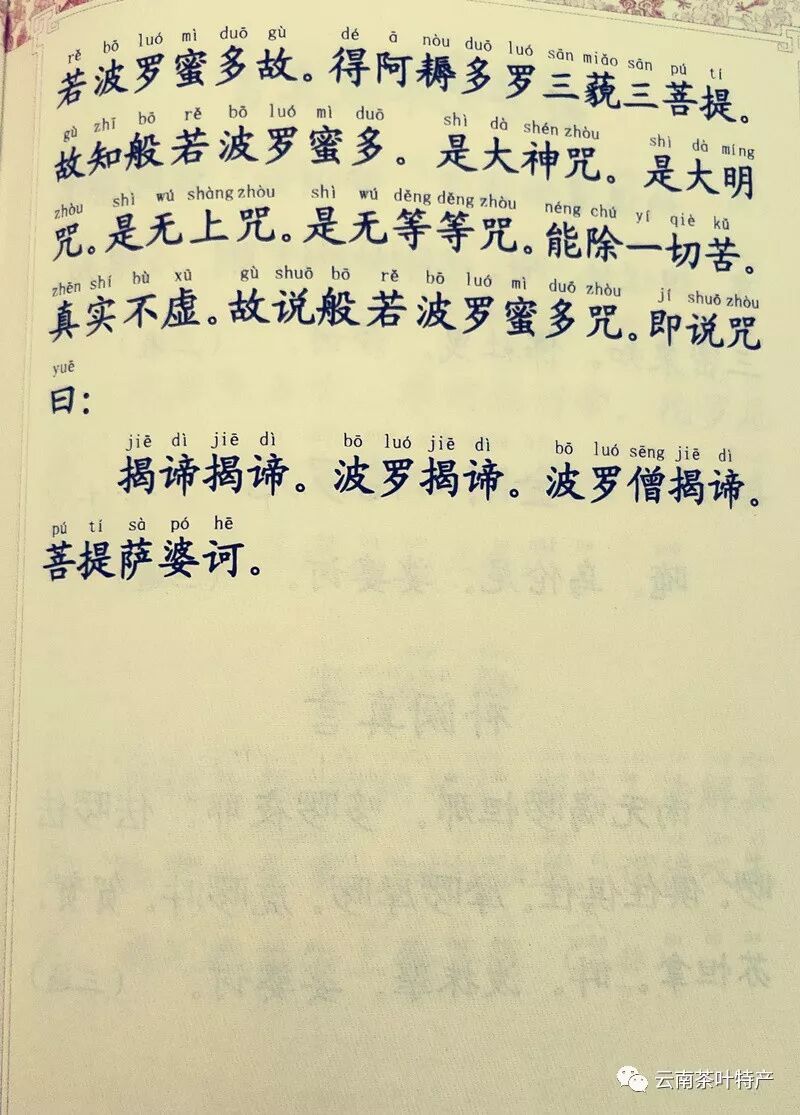 rě bō luó mì duō gù dé ā nòu duō luó sān miǎo sān pú tí
若波罗蜜多故。得阿耨多罗三藐三菩提。
gù zhī bō rě bō luó mì duō shì dà shén zhòu shì dà míng
故知般若波罗蜜多。是大神咒。是大明
zhòu shì wú shàng zhòu shì wú děng děng zhòu néng chú yí qiè kǔ
咒。是无上咒。是无等等咒。能除一切苦。
zhēn shí bù xū gù shuō bō rě bō luó mì duō zhòu jí shuō zhòu
真实不虚。故说般若波罗蜜多咒。即说咒
yuē
曰：
jiē dì jiē dì bō luó jiē dì bō luó sēng jiē dì
揭谛揭谛。波罗揭谛。波罗僧揭谛。
pú tí sà pó hē
菩提萨婆诃。
云南茶叶特产